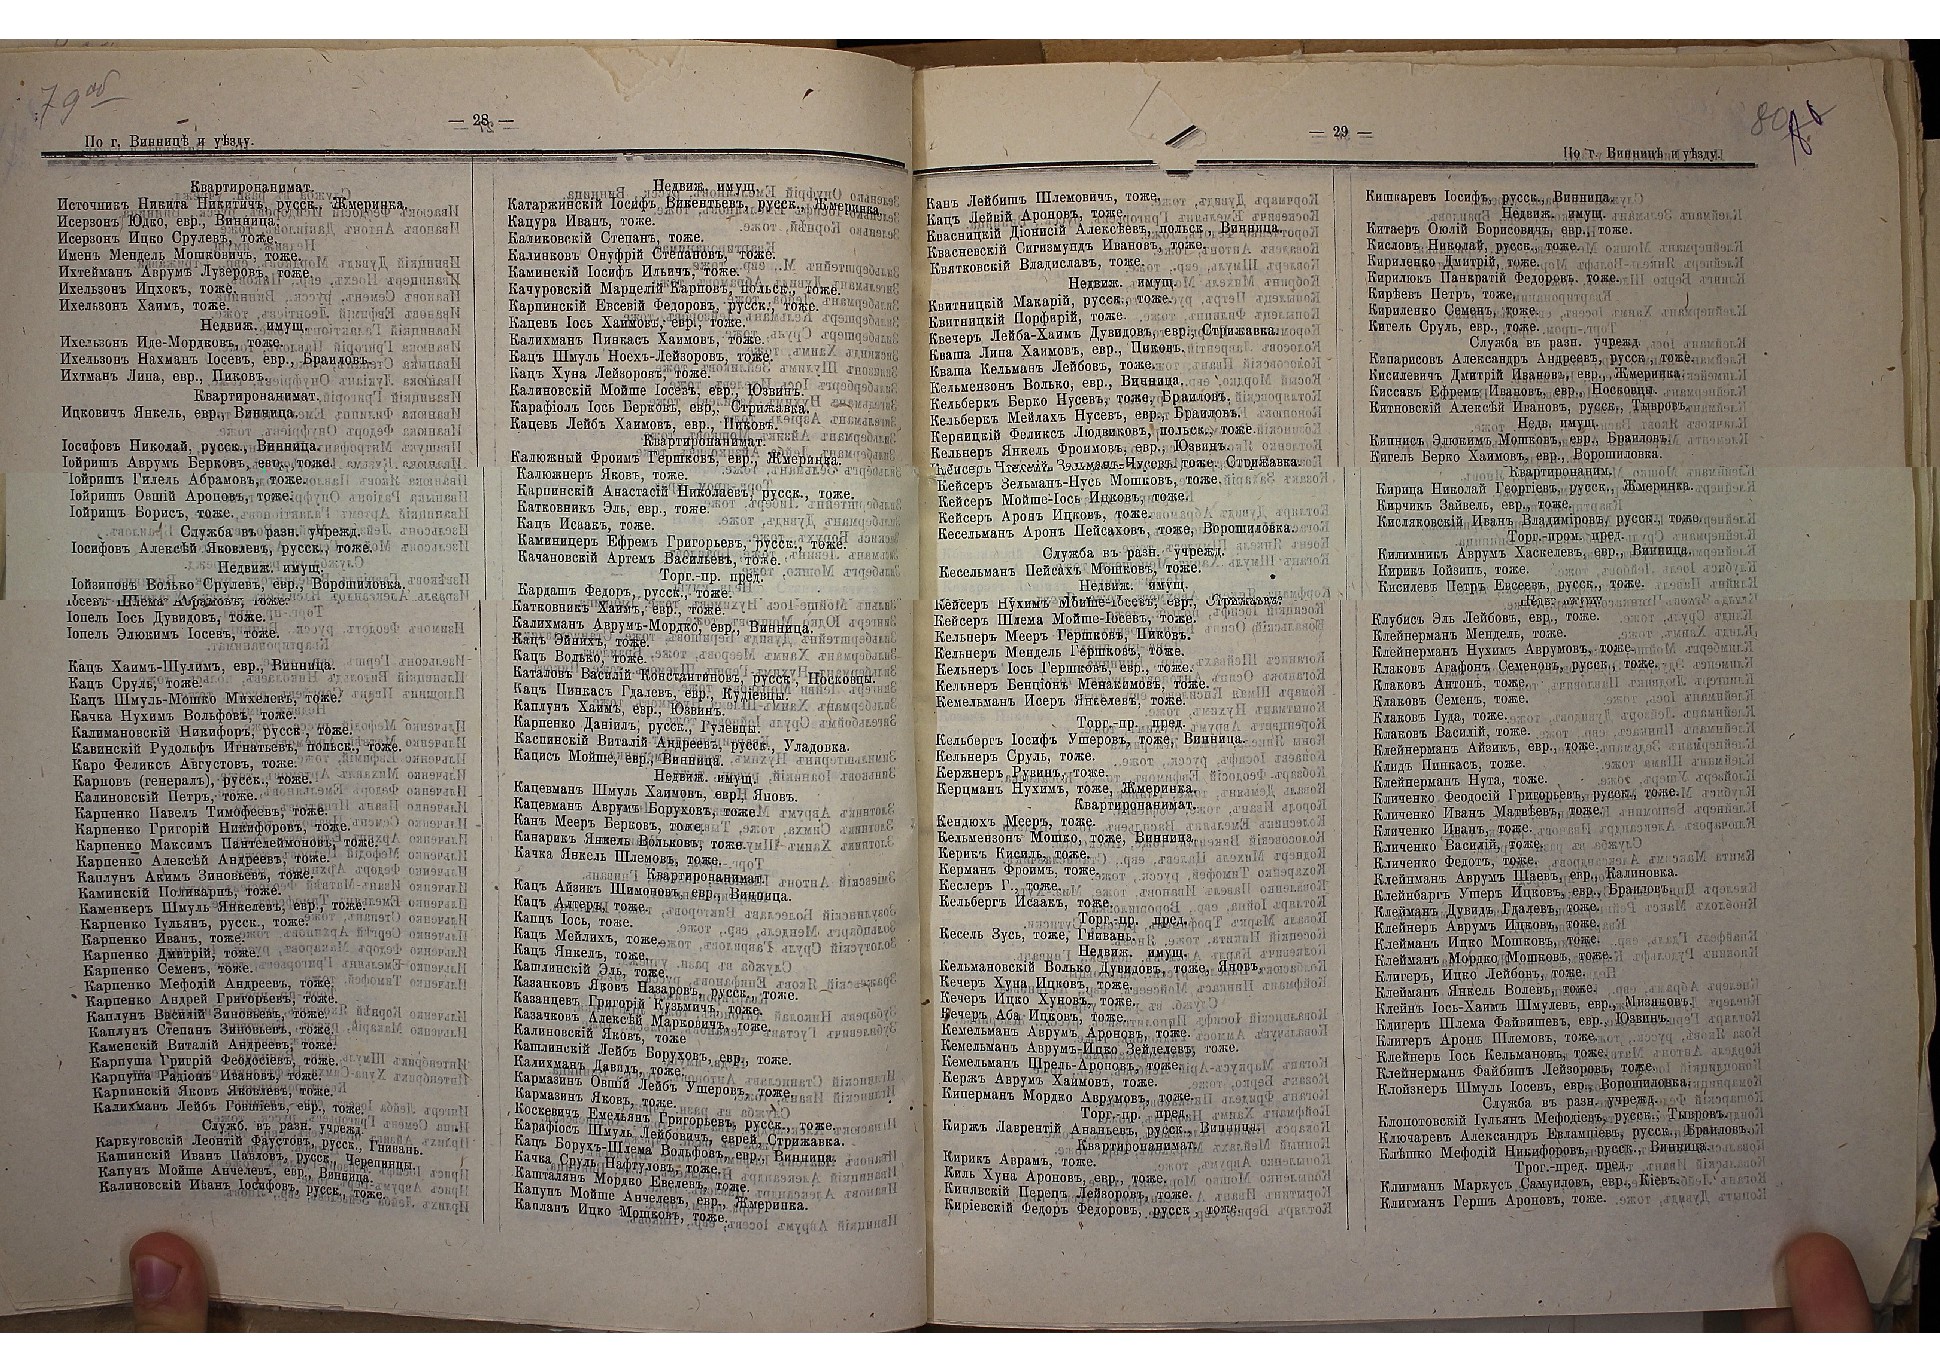 79 об
— 28 —
По г. Винницѣ и уѣзду.
Квартиронанимат.
Источникъ Никита Никитичъ, русск., Жмеринка.
Исерзонъ Юдко, евр., Винница.
Исерзонъ Ицко Срулевъ, тоже.
Именъ Мендель Мошковичъ, тоже.
Ихтейманъ Аврумъ Лузеровъ, тоже.
Ихельзонъ Ицхокъ, тоже.
Ихельзонъ Хаимъ, тоже.
Недвиж. имущ.
Ихельзонъ Иде-Мордковъ, тоже.
Ихельзонъ Нахманъ Іосевъ, евр., Браиловъ.
Ихтманъ Липа, евр., Пиковъ.
Квартиронанимат.
Ицковичъ Янкель, евр., Винница.
Іосифовъ Николай, русск., Винница.
Іойришъ Аврумъ Берковъ, евр., тоже.
Іойришъ Гилель Абрамовъ, тоже.
Іойришъ Овшій Ароновъ, тоже.
Іойришъ Борисъ, тоже.
Служба въ разн. учрежд.
Іосифовъ Алексѣй Яковлевъ, русск., тоже.
Недвиж. имущ.
Іойвиповъ Волько Срулевъ, евр., Ворошиловка.
Іосевъ Шлема Абрамовъ, тоже.
Іопель Іось Дувидовъ, тоже.
Іопель Элюкимъ Іосевъ, тоже.
Кацъ Хаимъ-Шулимъ, евр., Винница.
Кацъ Сруль, тоже.
Кацъ Шмуль-Мошко Михелевъ, тоже.
Качка Нухимъ Вольфовъ, тоже.
Калимановскій Никифоръ, русск., тоже.
Кавинскій Рудольфъ Игнатьевъ, польск., тоже.
Каро Феликсъ Августовъ, тоже.
Карповъ (генералъ), русск., тоже.
Калиновскій Петръ, тоже.
Карпенко Павелъ Тимофеевъ, тоже.
Карпенко Григорій Никифоровъ, тоже.
Карпенко Максимъ Пантелеймоновъ, тоже.
Карпенко Алексѣй Андреевъ, тоже.
Каплунъ Акимъ Зиновьевъ, тоже.
Каминскій Поликарпъ, тоже.
Каменкеръ Шмуль Янкелевъ, евр., тоже.
Карпенко Іульянъ, русск., тоже.
Карпенко Иванъ, тоже.
Карпенко Дмитрій, тоже.
Карпенко Семенъ, тоже.
Карпенко Мефодій Андреевъ, тоже.
Карпенко Андрей Григорьевъ, тоже.
Каплунъ Василій Зиновьевъ, тоже.
Каплунъ Степанъ Зиновьевъ, тоже.
Каменскій Виталій Андреевъ, тоже.
Карпуша Григрій Феодосіевъ, тоже.
Карпуша Радіонъ Ивановъ, тоже.
Карпинскій Яковъ Яковлевъ, тоже.
Калихманъ Лейбъ Говшіевъ, евр., тоже.
Служб. въ разн. учрежд.
Каркутовскій Леонтій Фаустовъ, русск., Гнивань.
Кашинскій Иванъ Павловъ, русск., Черепинцы.
Капунъ Мойше Анчелевъ, евр., Винница.
Калиновскій Иванъ Іосифовъ, русск., тоже.
Недвиж. имущ.
Катаржинскій Іосифъ Викентьевъ, русск., Жмеринка.
Кацура Иванъ, тоже.
Каликовскій Степанъ, тоже.
Калинковъ Онуфрій Степановъ, тоже.
Каминскій Іосифъ Ильичъ, тоже.
Качуровскій Марцелій Карповъ, польск., тоже.
Карпинскій Евсевій Федоровъ, русск., тоже.
Кацевъ Іось Хаимовъ, евр., тоже.
Калихманъ Пинкасъ Хаимовъ, тоже.
Кацъ Шмуль Носехъ-Лейзоровъ, тоже.
Кацъ Хуна Лейзоровъ, тоже.
Калиновскій Мойше Іосевъ, евр., Юзвинъ.
Карафіолъ Іось Берковъ, евр., Стрижавка.
Кацевъ Лейбъ Хаимовъ, евр., Пиковъ.
Квартиронанимат.
Калюжный Фроимъ Гершковъ, евр., Жмеринка.
Калюжнеръ Яковъ, тоже.
Карпинскій Анастасій Николаевъ, русск., тоже.
Катковникъ Эль, евр., тоже.
Кацъ Исаакъ, тоже.
Каминицеръ Ефремъ Григорьевъ, русск., тоже.
Качановскій Артемъ Васильевъ, тоже.
Торг.-пр. пред.
Кардашъ Федоръ, русск., тоже.
Катковникъ Хаимъ, евр., тоже.
Калихманъ Аврумъ-Мордко, евр., Винница.
Кацъ Эйнихъ, тоже.
Кацъ Волько, тоже.
Каталовъ Василій Константиновъ, русск., Носковцы.
Кацъ Пинкасъ Гдалевъ, евр., Кудіевцы.
Каплунъ Хаимъ, евр., Юзвинъ.
Карпенко Даніилъ, русск., Гулевцы.
Каспинскій Виталій Андреевъ, русск., Уладовка.
Кацисъ Мойше, евр., Винница.
Недвиж. имущ.
Кацевманъ Шмуль Хаимовъ, евр., Яновъ.
Кацевманъ Аврумъ Боруховъ, тоже.
Канъ Мееръ Берковъ, тоже.
Канарикъ Янкель Вольковъ, тоже.
Качка Янкель Шлемовъ, тоже.
Квартиронанимат.
Кацъ Айзикъ Шимоновъ, евр., Винница.
Кацъ Алтеръ, тоже.
Капцъ Іось, тоже.
Кацъ Мейлихъ, тоже.
Кацъ Янкель, тоже.
Кашлинскій Эль, тоже.
Казанковъ Яковъ Назаровъ, русск., тоже.
Казанцевъ Григорій Кузьмичъ, тоже.
Казачковъ Алексѣй Марковичъ, тоже.
Калиновскій Яковъ, тоже
Кашлинскій Лейбъ Боруховъ, евр., тоже.
Калихманъ Давидъ, тоже.
Кармазинъ Овшій Лейбъ Ушеровъ, тоже.
Кармазинъ Яковъ, тоже.
Коскевичъ Емельянъ Григорьевъ, русск., тоже.
Карафіосъ Шмуль Лейбовичъ, еврей, Стрижавка.
Кацъ Борухъ-Шлема Вольфовъ, евр., Винница.
Качка Сруль Нафтуловъ, тоже.
Кашталянъ Мордко Евелевъ, тоже.
Капунъ Мойше Анчелевъ, евр., Жмеринка.
Капланъ Ицко Мошковъ, тоже.
80
— 29 —
По г. Винницѣ и уѣзду.
Канъ Лейбишъ Шлемовичъ, тоже.
Кацъ Лейвій Ароновъ, тоже.
Квасницкій Діонисій Алексѣевъ, польск., Винница.
Квасневскій Сигизмундъ Ивановъ, тоже.
Квятковскій Владиславъ, тоже.
Недвиж. имущ.
Квитницкій Макарій, русск., тоже.
Квитницкій Порфирій, тоже.
Квечеръ Лейба-Хаимъ Дувидовъ, евр., Стрижавка.
Кваша Липа Хаимовъ, евр., Пиковъ.
Кваша Кельманъ Лейбовъ, тоже.
Кельмензонъ Волько, евр., Винница.
Кельберкъ Берко Нусевъ, тоже, Браиловъ.
Кельберкъ Мейлахъ Нусевъ, евр., Браиловъ.
Керницкій Феликсъ Людвиковъ, польск., тоже.
Кельнеръ Янкель Фроимовъ, евр., Юзвинъ.
Кейсеръ Зельманъ-Нусь Мошковъ, тоже.
Кейсеръ Мойше-Іось Ицковъ, тоже.
Кейсеръ Аронъ Ицковъ, тоже.
Кесельманъ Аронъ Пейсаховъ, тоже, Ворошиловка.
Служба въ разн. учрежд.
Кесельманъ Пейсахъ Мошковъ, тоже.
Недвиж. имущ.
Кейсеръ Нухимъ Мойше-Іосевъ, евр., Стрижавка.
Кейсеръ Шлема Мойше-Іосевъ, тоже.
Кельнеръ Мееръ Гершковъ, Пиковъ.
Кельнеръ Мендель Гершковъ, тоже.
Кельнеръ Іось Гершковъ, евр., тоже.
Кельнеръ Бенціонъ Менакимовъ, тоже.
Кемельманъ Исеръ Янкелевъ, тоже.
Торг.-пр. пред.
Кельбергъ Іосифъ Ушеровъ, тоже, Винница.
Кельнеръ Сруль, тоже.
Кержнеръ Рувинъ, тоже.
Керцманъ Нухимъ, тоже, Жмеринка.
Квартиронанимат.
Кендюхъ Мееръ, тоже.
Кельмензонъ Мошко, тоже, Винница.
Керикъ Кисиль, тоже.
Керманъ Фроимъ, тоже.
Кеслеръ Г., тоже.
Кельбергъ Исаакъ, тоже.
Торг.-пр. пред.
Кесель Зусь, тоже, Гнивань.
Недвиж. имущ.
Кельмановскій Волько Дувидовъ, тоже, Яновъ.
Кечеръ Хуна Ицковъ, тоже.
Кечеръ Ицко Хуновъ, тоже.
Кечеръ Аба Ицковъ, тоже.
Кемельманъ Аврумъ Ароновъ, тоже.
Кемельманъ Аврумъ-Ицко Зейделевъ, тоже.
Кемельманъ Шрель-Ароповъ, тоже.
Кержъ Аврумъ Хаимовъ, тоже.
Киперманъ Мордко Аврумовъ, тоже.
Торг.-пр. пред.
Киржъ Лаврентій Ананьевъ, русск., Винница.
Квартиронанимат.
Кирикъ Аврамъ, тоже.
Киль Хуна Ароновъ, евр., тоже.
Кинявскій Перецъ Лейзоровъ, тоже.
Киріевскій Федоръ Федоровъ, русск., тоже.
Кишкаревъ Іосифъ, русск., Винница.
Недвиж. имущ.
Китаеръ Оюлій Борисовичъ, евр., тоже.
Кисловъ Николай, русск., тоже.
Кириленко Дмитрій, тоже.
Кирилюкъ Панкратій Федоровъ, тоже.
Кирѣевъ Петръ, тоже.
Кириленко Семенъ, тоже.
Кигель Сруль, евр., тоже.
Служба въ разн. учрежд.
Кипарисовъ Александръ Андреевъ, русск., тоже.
Кисилевичъ Дмитрій Ивановъ, евр., Жмеринка.
Киссакъ Ефремъ Ивановъ, евр., Носковцы.
Китновскій Алексѣй Ивановъ, русск., Тывровъ.
Недв. имущ.
Кипнисъ Элюкимъ Мошковъ, евр., Браиловъ.
Кигель Берко Хаимовъ, евр., Ворошиловка.
Квартиронаним.
Кирица Николай Георгіевъ, русск., Жмеринка.
Кирчикъ Зайвель, евр., тоже.
Кисляковскій Иванъ Владиміровъ, русск., тоже.
Торг.-пром. пред.
Килимникъ Аврумъ Хаскелевъ, евр., Винница.
Кирикъ Іойзипъ, тоже.
Кисилевъ Петръ Евсеевъ, русск., тоже.
Недв. имущ.
Клубисъ Эль Лейбовъ, евр., тоже.
Клейнерманъ Мендель, тоже.
Клейнерманъ Нухимъ Аврумовъ, тоже.
Клаковъ Агафонъ Семеновъ, русск., тоже.
Клаковъ Антонъ, тоже.
Клаковъ Семенъ, тоже.
Клаковъ Іуда, тоже.
Клаковъ Василій, тоже.
Клейнерманъ Айзикъ, евр., тоже.
Клидъ Пинкасъ, тоже.
Клейнерманъ Нута, тоже.
Кличенко Феодосій Григорьевъ, русск., тоже.
Кличенко Иванъ Матвѣевъ, тоже.
Кличенко Иванъ, тоже.
Кличенко Василій, тоже.
Кличенко Федотъ, тоже.
Клейнманъ Аврумъ Шаевъ, евр., Калиновка.
Клейнбаргъ Ушеръ Ицковъ, евр., Браиловъ.
Клейманъ Дувидъ Гдалевъ, тоже.
Клейнеръ Аврумъ Ицковъ, тоже.
Клейманъ Ицко Мошковъ, тоже.
Клейманъ Мордко Мошковъ, тоже.
Клигеръ, Ицко Лейбовъ, тоже.
Клейманъ Янкель Волевъ, тоже.
Клейнъ Іось-Хаимъ Шмулевъ, евр., Мизяковъ.
Клигеръ Шлема Файвишевъ, евр., Юзвинъ.
Клигеръ Аронъ Шлемовъ, тоже.
Клейнеръ Іось Кельмановъ, тоже.
Клейнерманъ Файбишъ Лейзоровъ, тоже.
Клойзнеръ Шмуль Іосевъ, евр., Ворошиловка.
Служба въ разн. учрежд.
Клопотовскій Іульянъ Мефодіевъ, русск., Тывровъ.
Ключаревъ Александръ Евлампіевъ, русск., Браиловъ.
Клѣшко Мефодій Никифоровъ, русск., Винница.
Трог.-пред. пред.
Клигманъ Маркусъ Самуиловъ, евр., Кіевъ.
Клигманъ Гершъ Ароновъ, тоже.